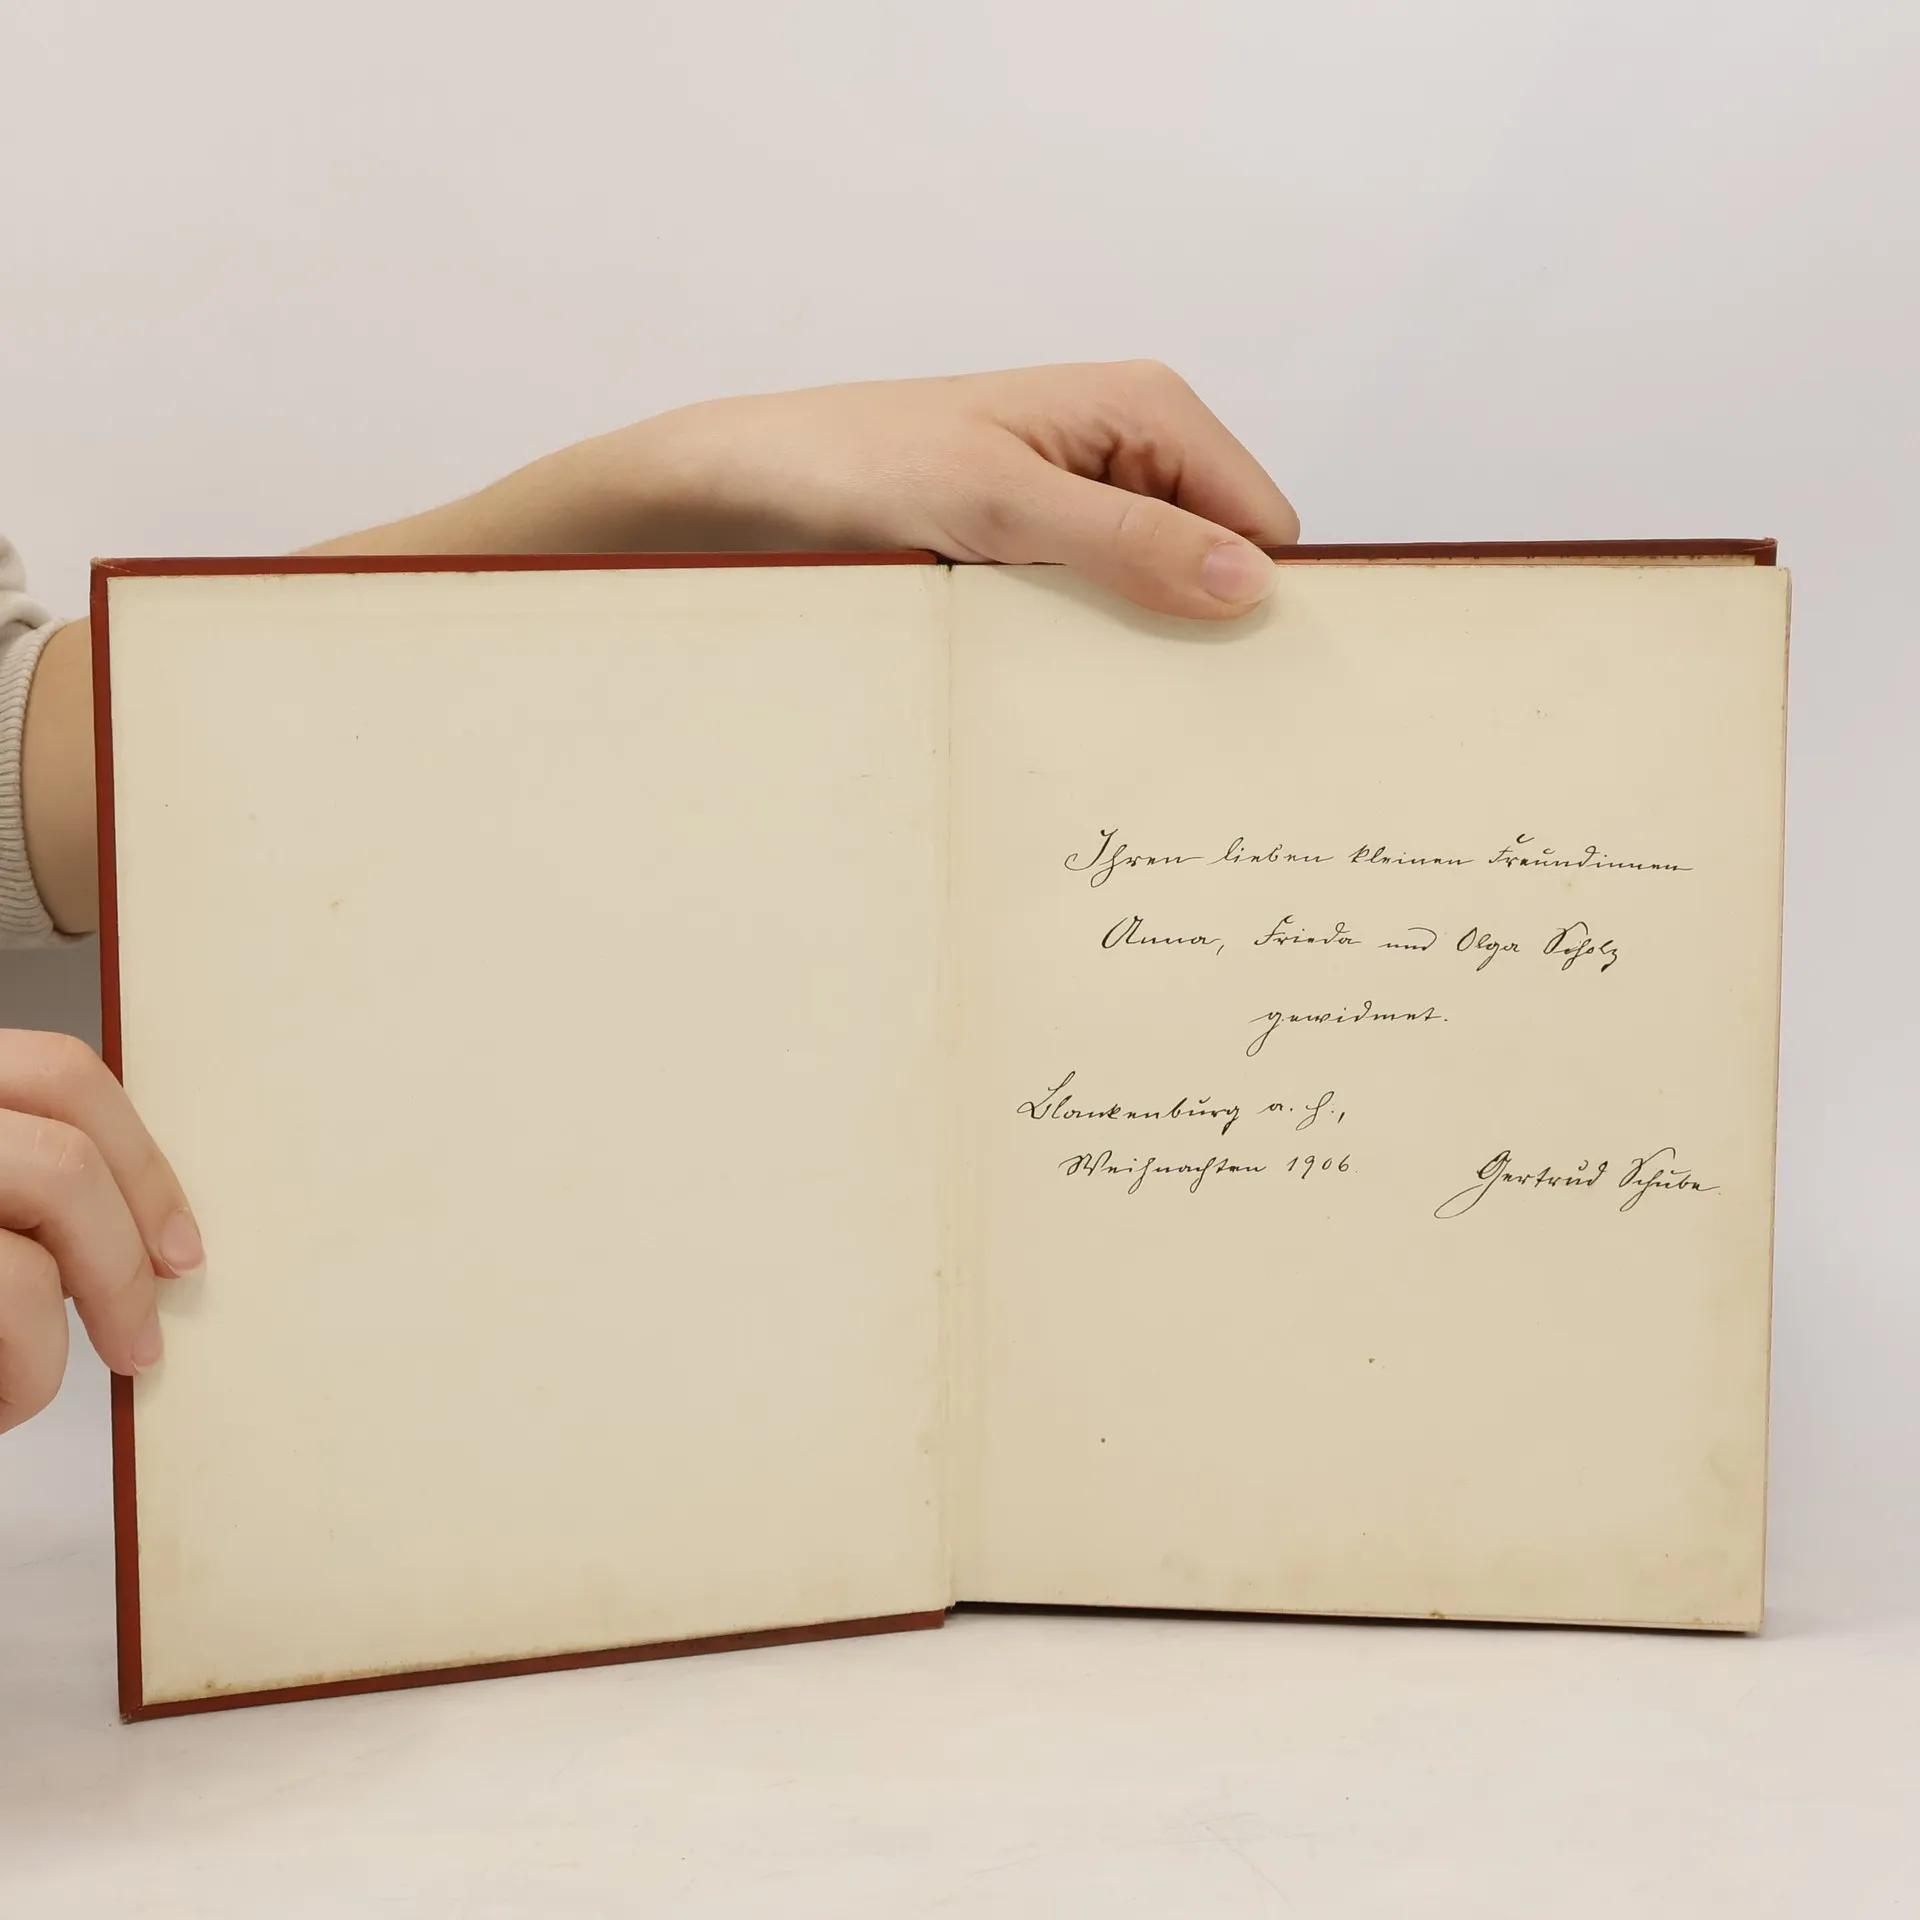 Ihren lieben kleinen Freundinnen
Anna, Frieda und Olga Scholz
gewidmet.
Blankenburg a. H.,
Weihnachten 1906.
Gertrud Schube.